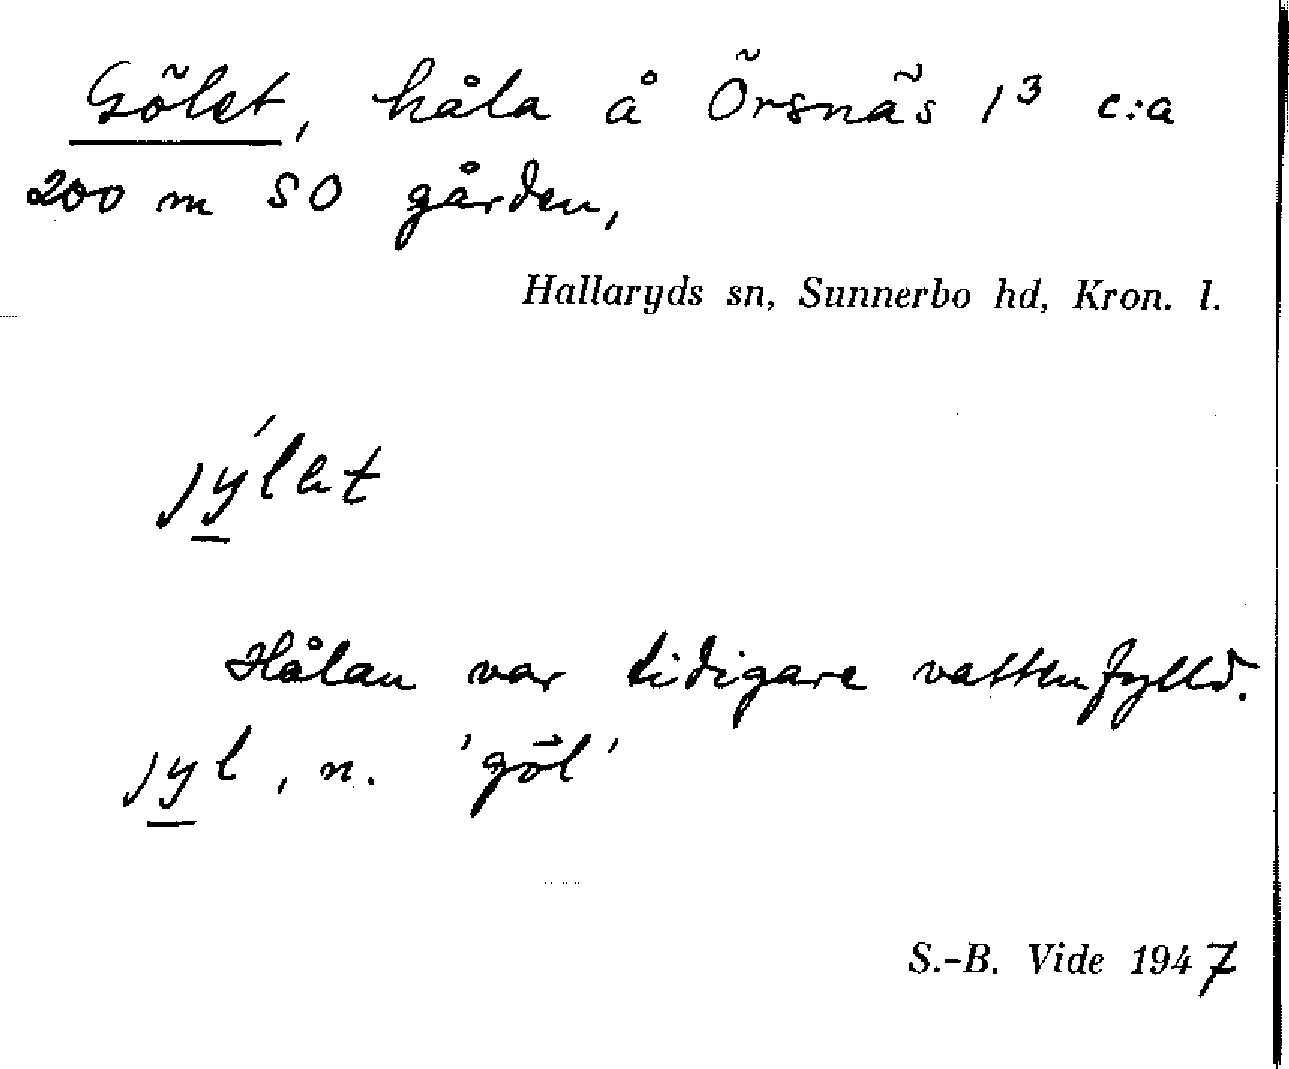 Gölet, håla å Örsnäs 1³ c:a
200 m SO gården,
Hallaryds sn, Sunnerbo hd, Kron. l.
jýlet
Hålan var tidigare vattenfylld.
jyl, n. 'göl'
S.-B. Vide 1947